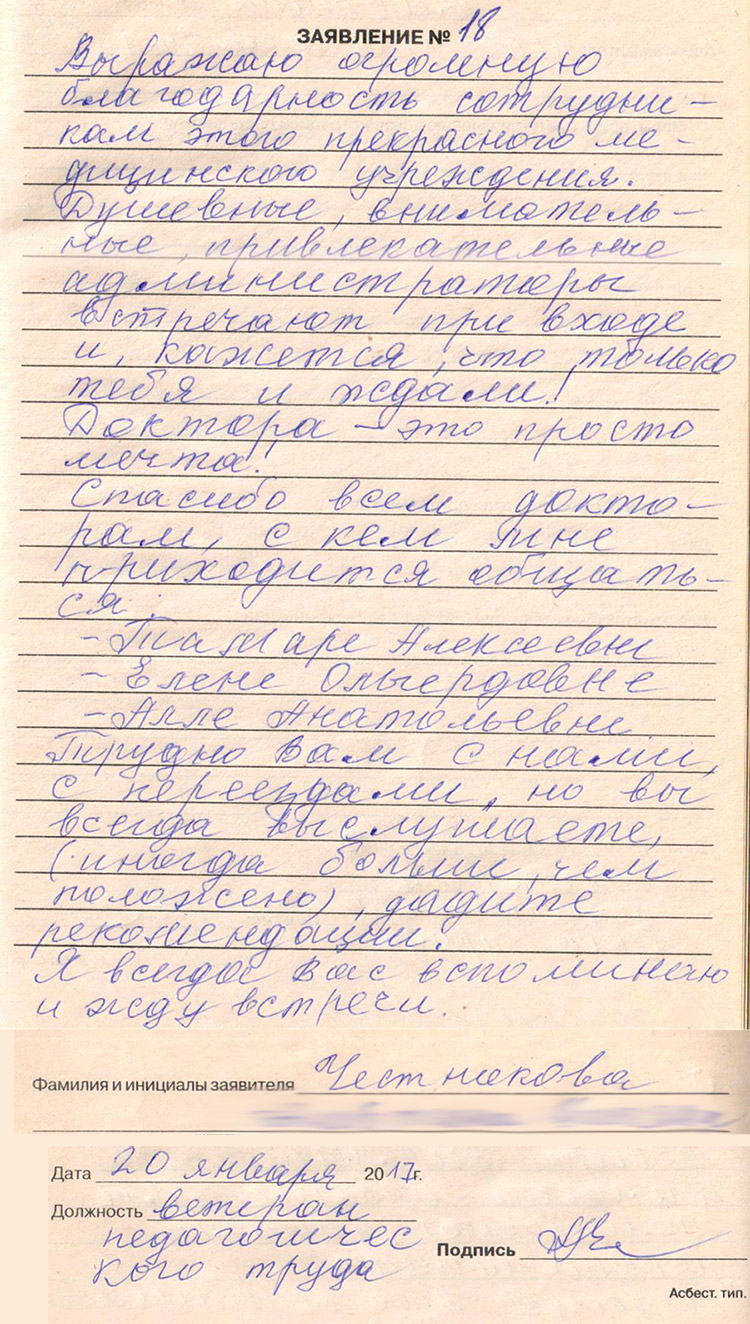 ЗАЯВЛЕНИЕ № 18
Выражаю огромную
благодарность сотрудни-
кам этого прекрасного ме-
дицинского учреждения.
Душевные, вниматель-
ные, привлекательные
администраторы
встречают при входе
и, кажется, что только
тебя и ждали!
Доктора – это просто
мечта!
Спасибо всем докто-
рам, с кем мне
приходится общать-
ся:
- Тамаре Алексеевне
- Елене Ольгердовне
- Алле Анатольевне
Трудно Вам с нами,
с переездами, но вы
всегда выслушаете,
(иногда больше, чем
положено), дадите
рекомендации.
Я всегда Вас вспоминаю
и жду встречи.
Фамилия и инициалы заявителя Честнакова
Дата 20 января 2017г.
Должность ветеран
педагогичес
кого труда
Подпись
Асбест. тип.